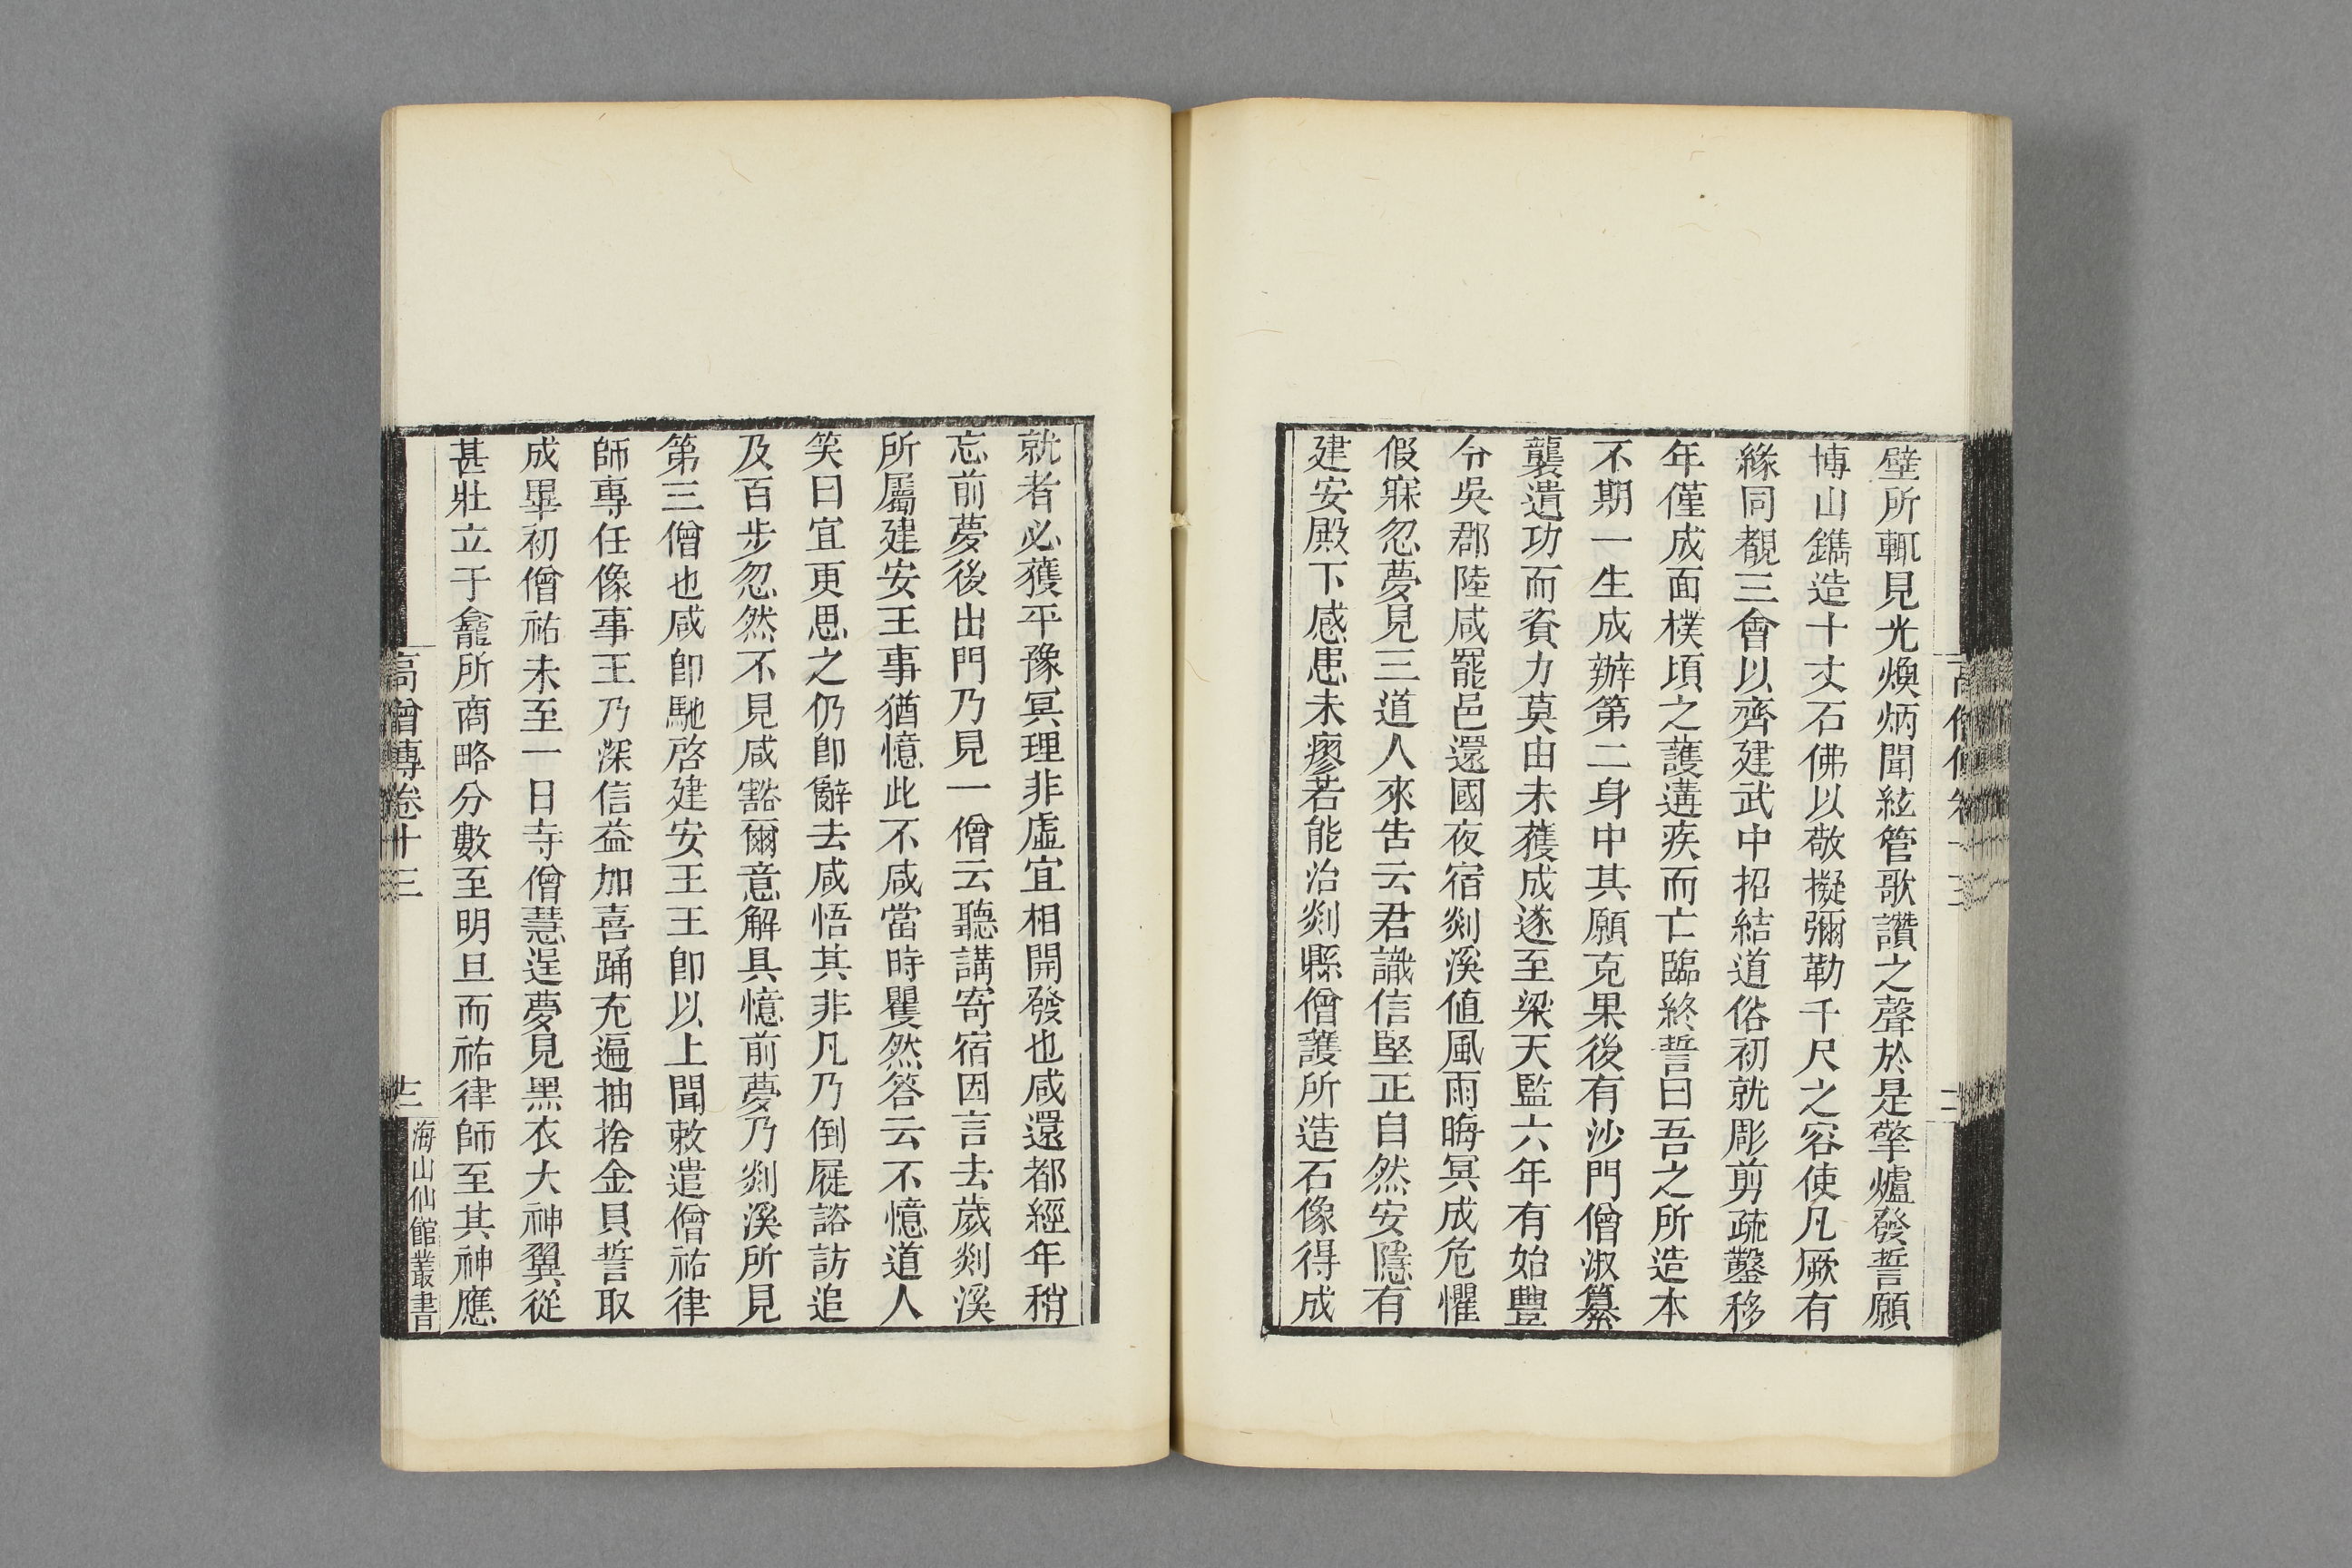 壁所輒見光煥炳聞絃管歌讚之聲於是擎爐發誓願
博山鐫造十丈石佛以敬擬彌勒千尺之容使凡厥有
緣同覩三會以齊建武中招結道俗初就彫剪疏鑿移
年僅成面樸頃之護遘疾而亡臨終誓曰吾之所造本
不期一生成辦第二身中其願克果後有沙門僧淑纂
襲遺功而資力莫由未獲成遂至梁天監六年有始豐
令吳郡陸咸罷邑還國夜宿剡溪值風雨晦冥咸危懼
假寐忽夢見三道人來告云君識信堅正自然安隱有
建安殿下感患未瘳若能治剡縣僧護所造石像得成
就者必獲平豫冥理非虛宜相開發也咸還都經年稍
忘前夢後出門乃見一僧云聽講寄宿因言去歲剡溪
所屬建安王事猶憶此不咸當時瞿然答云不憶道人
笑曰宜更思之仍卽辭去咸悟其非凡乃倒屣諮訪追
及百步忽然不見咸豁爾意解具憶前夢乃剡溪所見
第三僧也咸卽馳啓建安王王卽以上聞敕遣僧祐律
師專任像事王乃深信益加喜踊充遍抽捨金貝誓取
成畢初僧祐未至一日寺僧慧逞夢見黑衣大神翼從
甚壯立于龕所商略分數至明旦而祐律師至其神應
高僧傳卷十三
海山仙館叢書